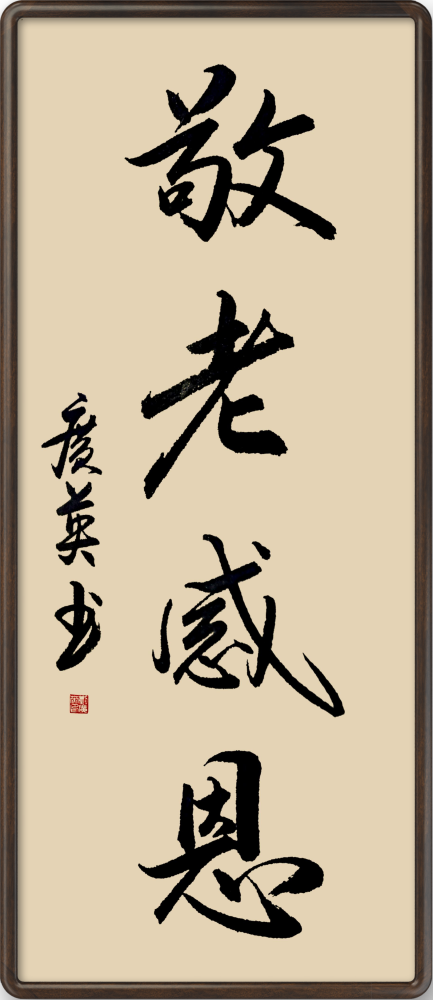 敬老感恩
广英书